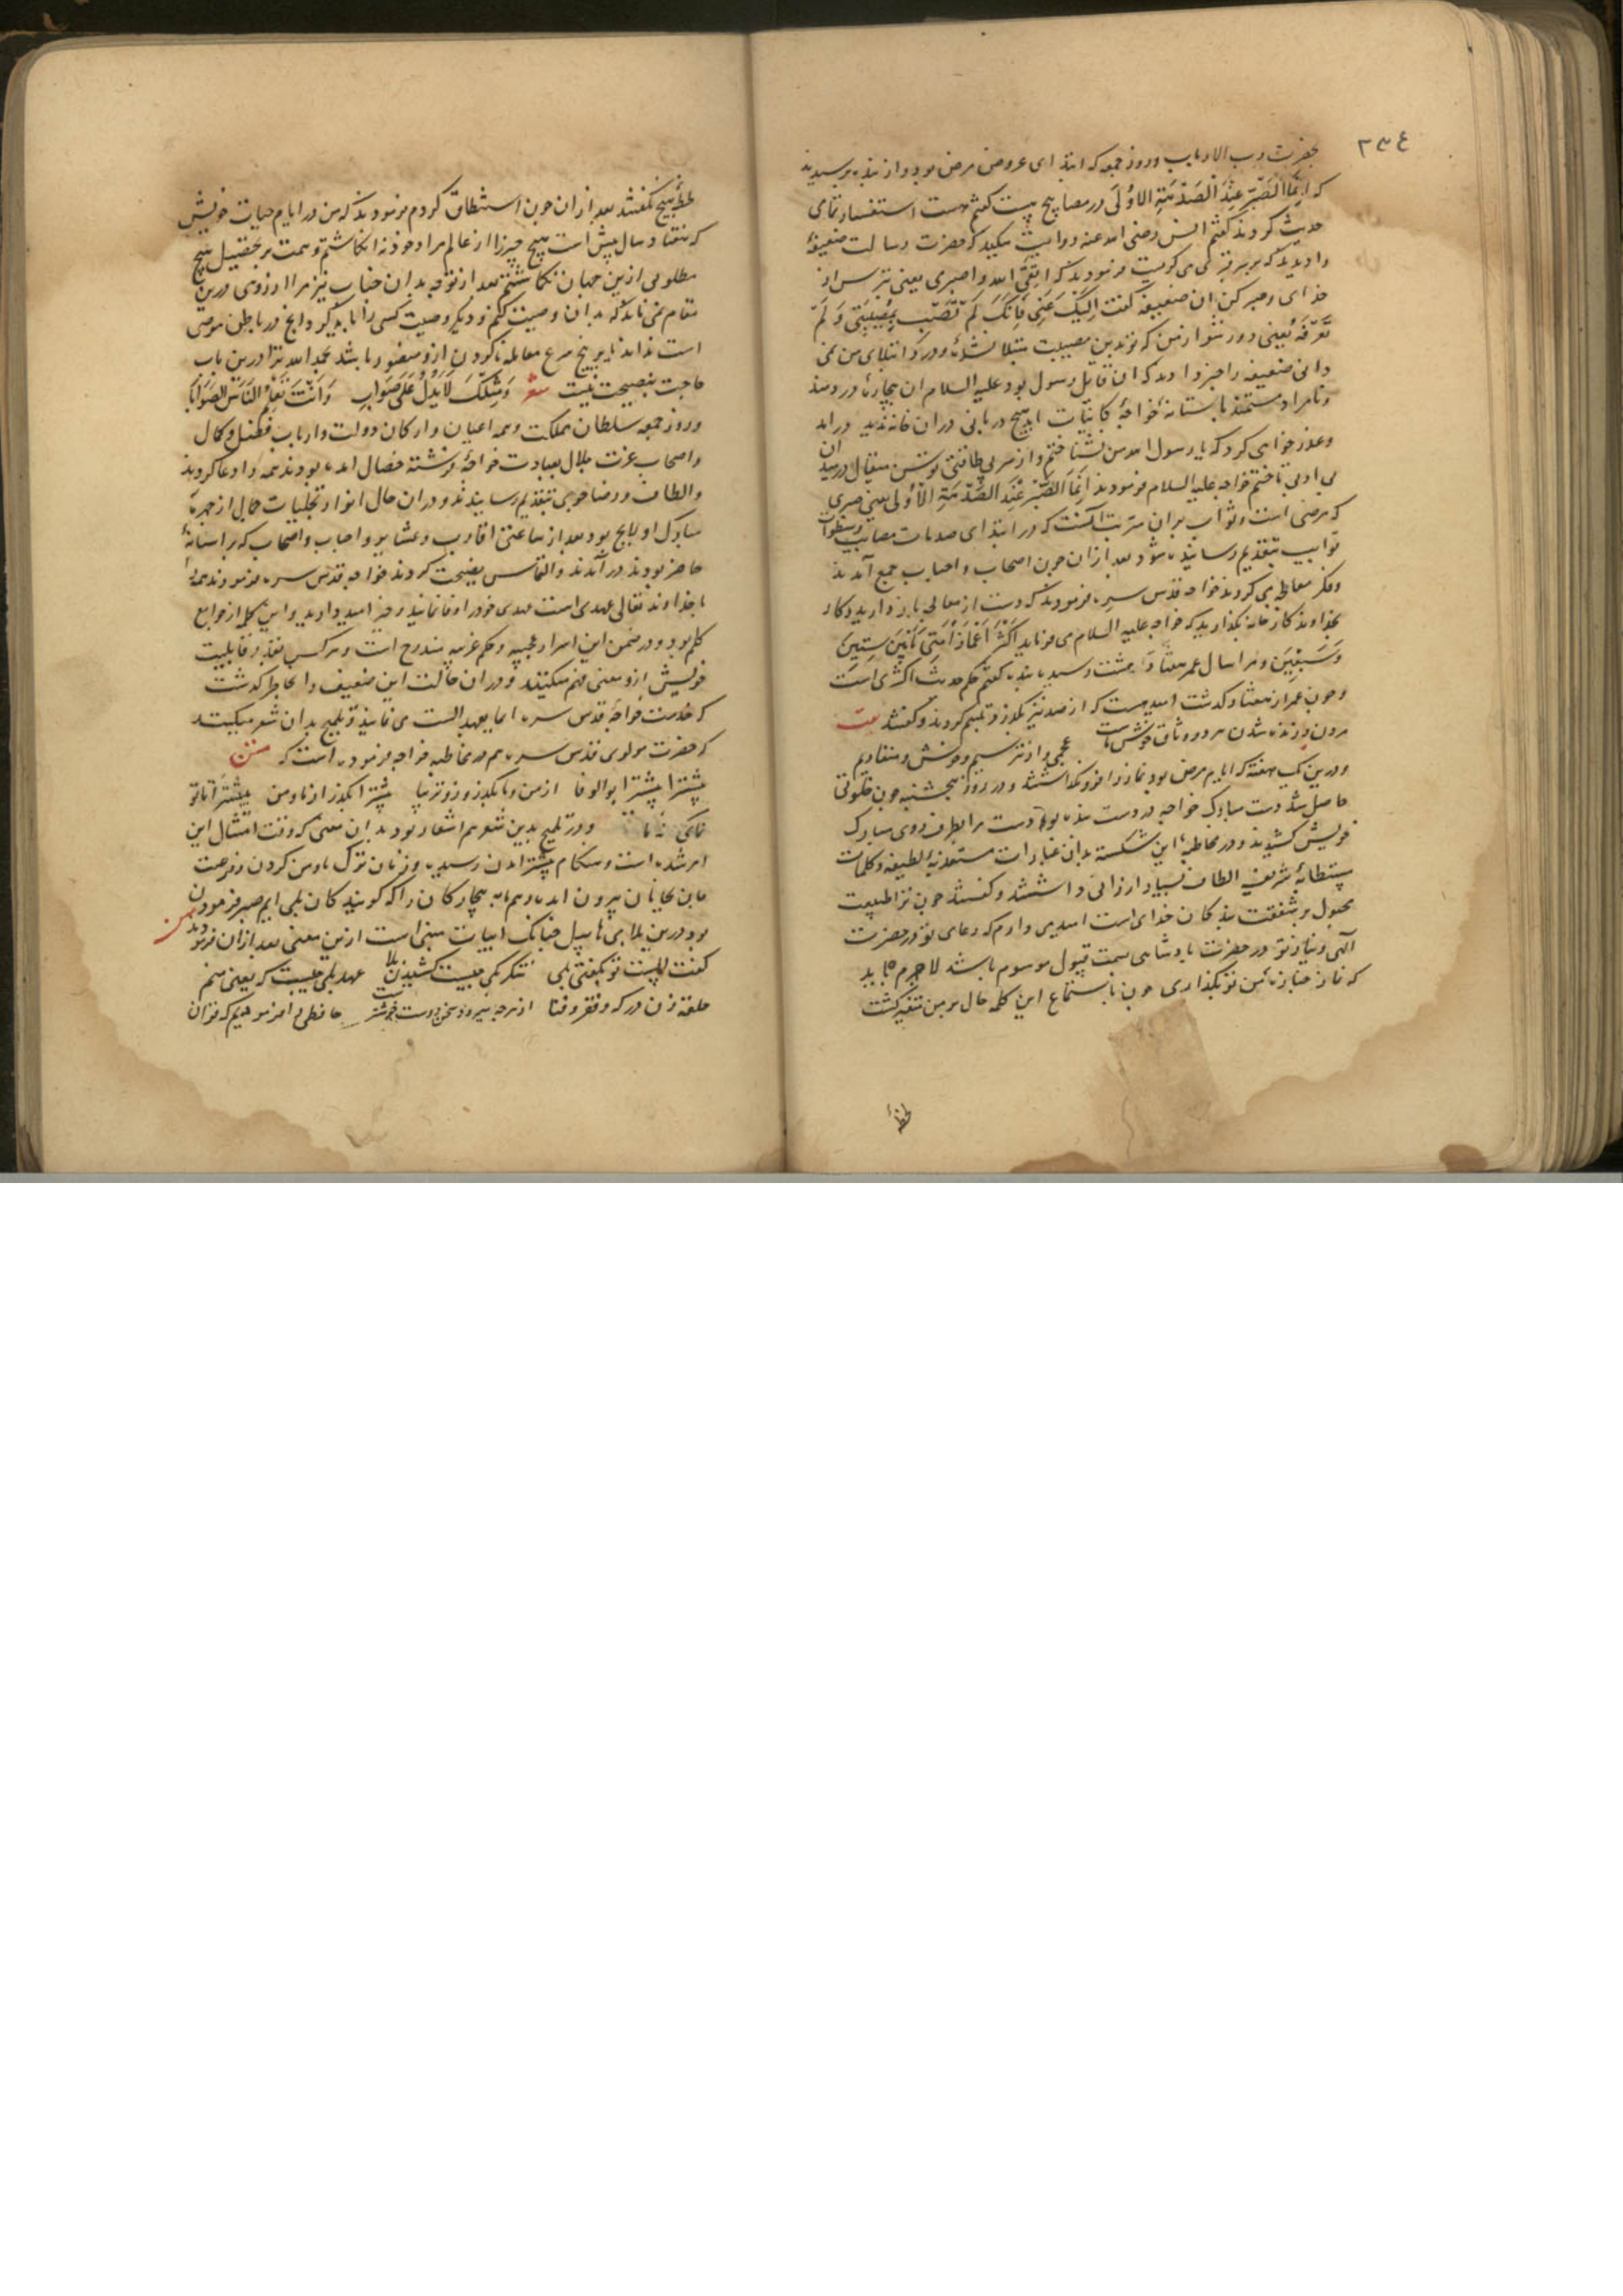 ٢٣٤
بحضرت رب الارباب و روز جمعه که ابتدای عروض مرض بود و از بنده پرسیدند
که اِنَّمَا الصَّبْرُ عِنْدَ الصَّدْمَةِ الاُوْلَی در مصابیح هست گفتم هست استفسار تمامی
حدیث کردند گفتم انس رضی الله عنه روایت میکند که حضرت رسالت ضعیفۀ
را دیدند که بر سر قبری می گریست فرمودند که اِتَّقِی الله واصبری یعنی بترس از
خدای و صبر کن ان ضعیفه گفت اِلَیْکَ عَنِّی فَاِنَّکَ لَمْ تُصَبْ بِمُصِیْبَتِی وَ لَمْ
تَعْرِفْهُ یعنی دور شو از من که تو بدین مصیبت مبتلا نشدۀ و درد ابتلای من نمی
دانی ضعیفه را خبر دادند که ان قایل رسول بود علیه السلام ان بیچارۀ دردمند
و نامراد مستمند باستانۀ خواجۀ کاینات امد هیچ دربانی دران خانه ندید در امد
و عذرخواهی کرد که یا رسول الله من نشناختم و از سر بی طاقتی توسن مقال در میدان
بی ادبی تاختم خواجه علیه السلام فرمودند اِنَّمَا الصَّبْرُ عِنْدَ الصَّدْمَةِ الاُوْلَی یعنی صبری
که مرضی است و ثواب بران مترتب آنست که در ابتدای صدمات مصایب و سطوات
نوایب بتقدیم رسانیده شود بعد ازان چون اصحاب و احباب جمع آمدند
و فکر معالجه می کردند خواجه قدس سره فرمودند که دست از معالجه باز دارید و کار
بخداوند کارخانه بگذارید که خواجه علیه السلام می فرماید اَکْثَرُ اَعْمَارِ اُمَّتِی مَابَیْنَ سِتِّیْنَ
وَ سَبْعِیْنَ و مرا سال عمر بهفتاد و هشت رسیده بنده گفتم حکم حدیث اکثری است
و چون عمر از هفتاد گذشت امید هست که از صد نیز بگذرد تبسم کردند و گفتند بیت
مردن و زنده شدن هر دو وثاق خوش ماست عجمی وار نترسیم و خوش و منقادیم
و درین یک هفته که ایام مرض بود نماز را فرو نگذاشتند و در روز پنجشنبه چون خلوتی
حاصل شد دست مبارک خواجه در دست بنده بود دست مرا بطرف روی مبارک
خویش کشیدند و در مخاطبۀ این شکسته بدان عبارات مستعذبۀ لطیفه و کلمات
مستطابۀ شریفه الطاف بسیار ارزانی داشتند و گفتند چون ترا طبیعت
مجبول بر شفقت بندگان خدای است امید می دارم که دعای تو در حضرت
آلهی و نیاز تو در حضرت پادشاهی بسمت قبول موسوم باشد لاجرم باید
که نماز جنازۀ من تو بگذاری چون باستماع این کلمه حال بر من متغیر گشت
لحظۀ
لحظۀ هیچ نگفتند بعد ازان چون استنطاق کردم فرمودند که من در ایام حیات خویش
که هفتاد سال بیش است هیچ چیز را از عالم مراد خود نه انگاشتم و همت بر تحصیل هیچ
مطلوبی ازین جهان نگماشتم بعد از توجه بدان جناب نیز مرا ارزوی درین
مقام نمی ماند که بدان وصیت کنم و دیگر وصیت کسی را باید کرد که انچ در باطن مرضی
است نداند یا بر نهج شرع معامله ناکردن ازو متصور باشد بحمد الله ترا درین باب
حاجت بنصیحت نیست شعر وَ مِثْلُکَ لَایُدَلُّ عَلَی صَوَابٍ وَ اَنْتَ تُعَلِّمُ النَّاسَ الصَّوَابَا
و روز جمعه سلطان مملکت و همه اعیان و ارکان دولت و ارباب فضل و کمال
و اصحاب عزت و جلال بعیادت خواجۀ فرشته خصال امده بودند همه را دعا کردند
و الطاف و رضاجوی بتقدیم رسانیدند و دران حال انوار تجلیات جمال از چهرۀ
مبارک او لایح بود بعد از ساعتی اقارب و عشایر و احباب و اصحاب که بر استانۀ
حاضر بودند در آمدند و التماس نصیحت کردند خواجه قدس سره فرمودند همه
با خداوند تعالی عهدی است عهدی خود را وفا نمایند و خیر امید دارید و این کلمه از جوامع
کلم بود و در ضمن این اسرار عجیبه و حکم غریبه مندرج است و هر کس بقدر قابلیت
خویش ازو معنی فهم میکنند و دران حالت این ضعیف را بخاطر گذشت
که خدمت خواجه قدس سره ایما بعهد الست می نمایند و تلمیح بدان شعر میکنند
که حضرت مولوی قدس سره هم در مخاطبه خواجه فرموده است که متن
پیشترا پیشترا بوالوفا از من و ما بگذر و زوتر بیا پیشترا بگذر از ما و من پیشترا تا نه تو
مانی نه ما و در تلمیح بدین شعر هم اشعار بود بدان معنی که وقت امتثال این
امر شده است و هنگام پیشتر امدن رسیده و زمان ترک ما و من کردن و فرصت
ما بن بجا پیرون امده و هم بیچارگان را که گویندگان بلی ایم صبر فرمودن
بود درین بلا بی ... چنانک ابیات مبنی است ازین معنی بعد ازان فرمودند متن
گفت الست تو بگفتی بلی شکر بلی چیست کشیدن بلا عهد بلی چیست که یعنی منم
حلقه زن درگه فقر و فنا از هرچه میرود سخن دوست خوشترست حافظی را امر فرمودیم که قران